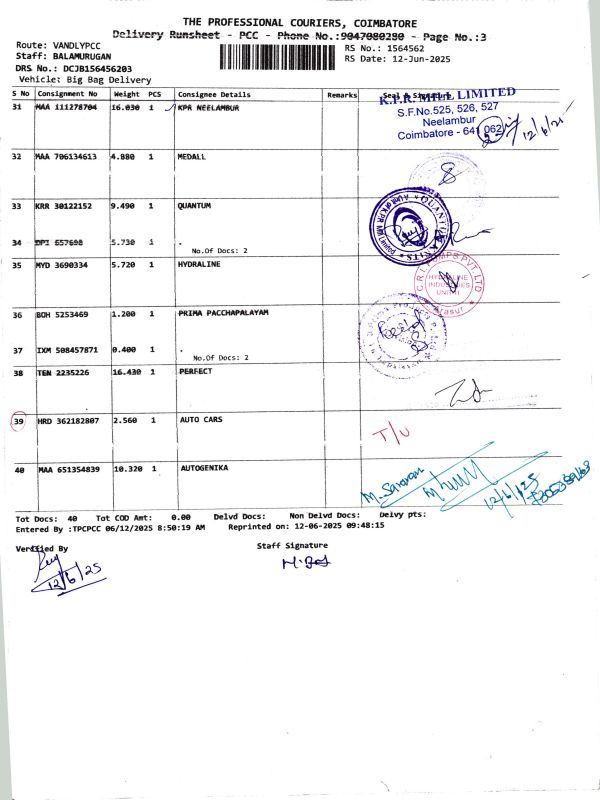 THE PROFESSIONAL COURIERS, COIMBATORE
Delivery Runsheet - PCC - Phone No.:9047080280 - Page No.:3
Route: VANDLYPCC
Staff: BALAMURUGAN
DRS No.: DCJB156456203
Vehicle: Big Bag Delivery
RS No.: 1564562
RS Date: 12-Jun-2025
S No Consignment No Weight PCS Consignee Details Remarks Seal & Signature
31 MAA 111278704 16.030 1 KPR NEELAMBUR
K.P.R. MILL LIMITED
S.F.No.525, 526, 527
Neelambur
Coimbatore - 641 062
12/6/25
32 MAA 706134613 4.880 1 MEDALL
33 KRR 30122152 9.490 1 QUANTUM
34 DPI 657698 5.730 1 .
No.Of Docs: 2
35 MYD 3690334 5.720 1 HYDRALINE
C.R.I. PUMPS PVT. LTD
HYDRALINE
INDUSTRIES
UNIT I
Arasur
36 BOH 5253469 1.200 1 PRIMA PACCHAPALAYAM
37 IXM 508457871 0.400 1 .
No.Of Docs: 2
38 TEN 2235226 16.430 1 PERFECT
39 HRD 362182807 2.560 1 AUTO CARS
T/U
40 MAA 651354839 10.320 1 AUTOGENIKA
M. Saravan
12/6/125
Tot Docs: 40 Tot COD Amt: 0.00 Delvd Docs: Non Delvd Docs: Delvy pts:
Entered By :TPCPCC 06/12/2025 8:50:19 AM Reprinted on: 12-06-2025 09:48:15
Verified By
Staff Signature
12/6/25